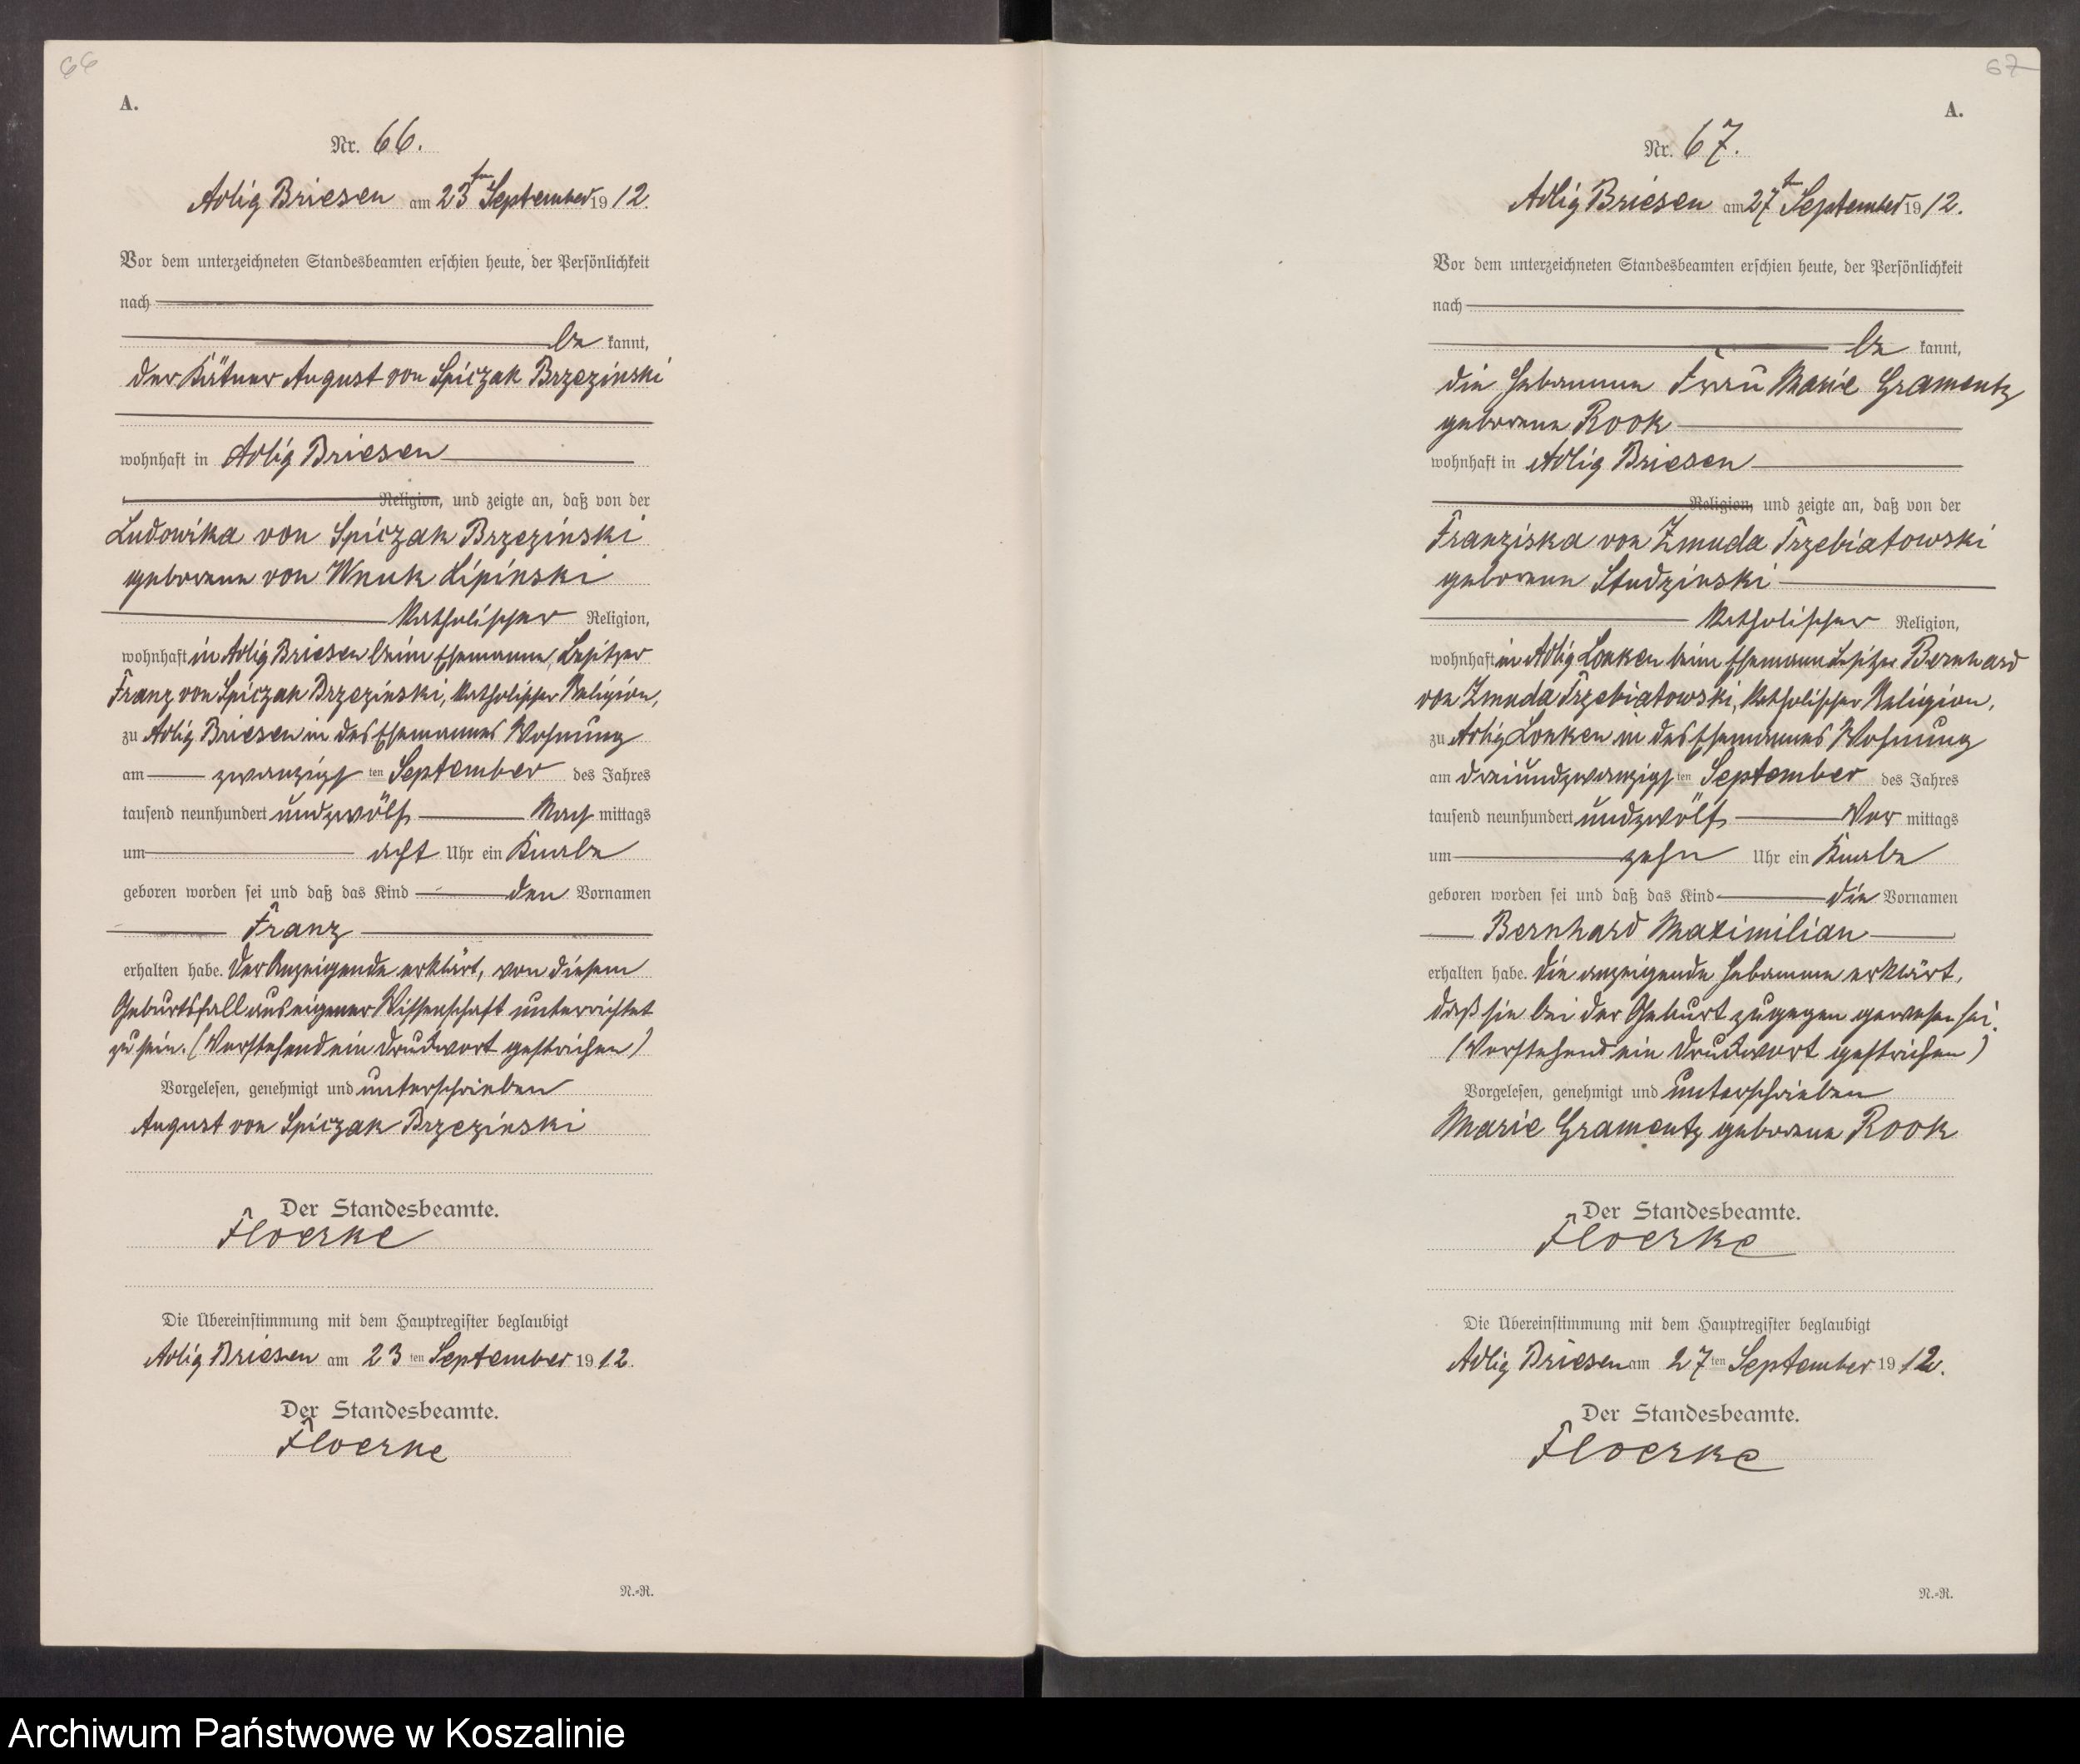 66
A.
Nr. 66.
Adlig Briesen am 23ten September 1912.
Vor dem unterzeichneten Standesbeamten erschien heute, der Persönlichkeit
nach
be kannt,
der Kätner August von Spiczak Brzezinski
wohnhaft in Adlig Briesen
Religion, und zeigte an, daß von der
Ludowika von Spiczak Brzezinski
geborene von Wnuk Lipinski
katholischer Religion,
wohnhaft in Adlig Briesen beim Ehemanne, Besitzer
Franz von Spiczak Brzezinski, katholischer Religion,
zu Adlig Briesen in des Ehemannes Wohnung
am zwanzigsten September des Jahres
tausend neunhundert undzwölf Nach mittags
um acht Uhr ein Knabe
geboren worden sei und daß das Kind den Vornamen
Franz
erhalten habe. Der Anzeigende erklärt, von diesem
Geburtsfall aus eigener Wissenschaft unterrichtet
zu sein. (Vorstehend ein Druckwort gestrichen)
Vorgelesen, genehmigt und unterschrieben
August von Spiczak Brzezinski
Der Standesbeamte.
Floerke
Die Übereinstimmung mit dem Hauptregister beglaubigt
Adlig Briesen am 23ten September 1912.
Der Standesbeamte.
Floerke
N.=R.
67
A.
Nr. 67.
Adlig Briesen am 27ten September 1912.
Vor dem unterzeichneten Standesbeamten erschien heute, der Persönlichkeit
nach
be kannt,
die Hebamme Frau Marie Gramentz
geborene Rook
wohnhaft in Adlig Briesen
Religion, und zeigte an, daß von der
Franziska von Zmuda Trzebiatowski
geborene Studzinski
katholischer Religion,
wohnhaft in Adlig Lonken beim Ehemann Besitzer Bernhard
von Zmuda Trzebiatowski, katholischer Religion,
zu Adlig Lonken in des Ehemannes Wohnung
am dreiundzwanzigsten September des Jahres
tausend neunhundert undzwölf Vor mittags
um zehn Uhr ein Knabe
geboren worden sei und daß das Kind die Vornamen
Bernhard Maximilian
erhalten habe. Die anzeigende Hebamme erklärt,
daß sie bei der Geburt zugegen gewesen sei.
(Vorstehend ein Druckwort gestrichen)
Vorgelesen, genehmigt und unterschrieben
Marie Gramentz geborene Rook
Der Standesbeamte.
Floerke
Die Übereinstimmung mit dem Hauptregister beglaubigt
Adlig Briesen am 27ten September 1912.
Der Standesbeamte.
Floerke
N.=R.
Archiwum Państwowe w Koszalinie